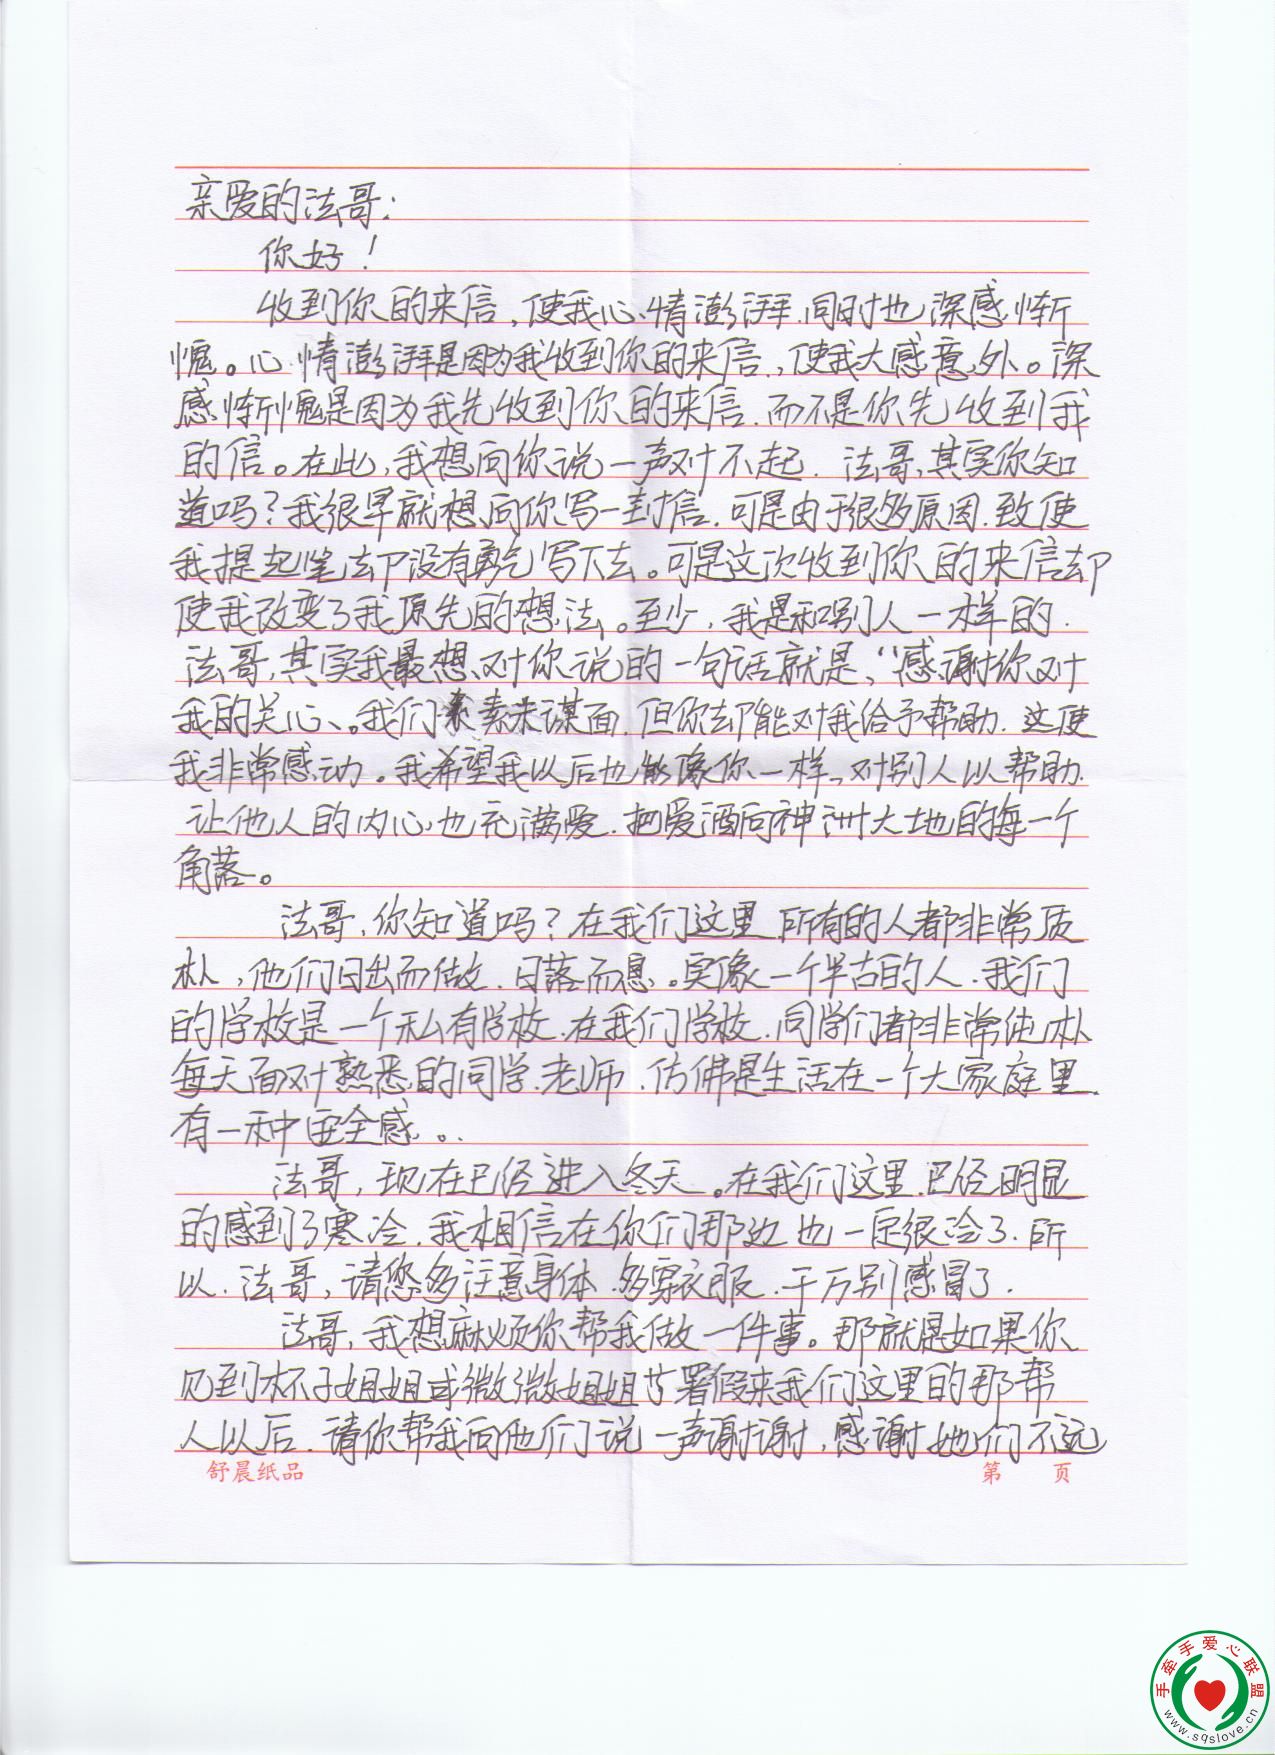 亲爱的法哥:
你好!
收到你的来信,使我心情澎湃.同时也深感惭
愧。心情澎湃是因为我收到你的来信,使我大感意外。深
感惭愧是因为我先收到你的来信.而不是你先收到我
的信。在此,我想向你说一声对不起.法哥,其实你知
道吗?我很早就想向你写一封信.可是由于很多原因.致使
我提起笔却没有勇气写下去。可是这次收到你的来信却
使我改变了我原先的想法。至少,我是和别人一样的.
法哥,其实我最想对你说的一句话就是,“感谢你对
我的关心、我们素未谋面.但你却能对我给予帮助.这使
我非常感动。我希望我以后也能像你一样,对别人以帮助.
让他人的内心也充满爱.把爱洒向神洲大地的每一个
角落。
法哥,你知道吗?在我们这里.所有的人都非常质
朴,他们日出而做.日落而息。实像一个半古的人.我们
的学校是一个私有学校.在我们学校.同学们都非常纯朴
每天面对熟悉的同学.老师.仿佛是生活在一个大家庭里.
有一种安全感。
法哥,现在已经进入冬天。在我们这里.已经明显
的感到了寒冷.我相信在你们那边也一定很冷了.所
以.法哥,请您多注意身体.多穿衣服.千万别感冒了.
法哥,我想麻烦你帮我做一件事。那就是如果你
见到杯子姐姐或微微姐姐等暑假来我们这里的那帮
人以后.请你帮我向他们说一声谢谢,感谢她们不远
舒晨纸品 第 页
手牵手爱心联盟
www.sqslove.cn